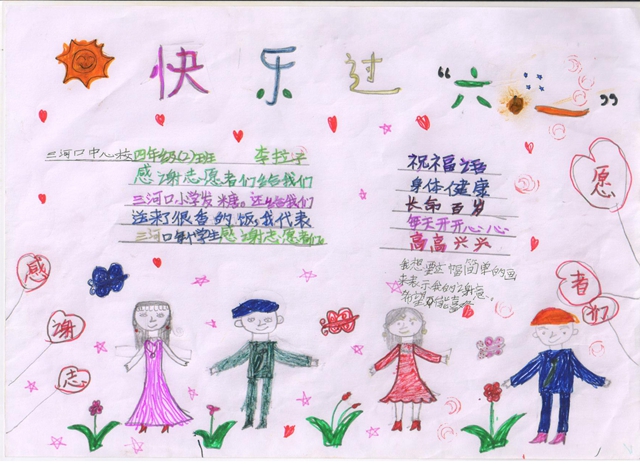 快乐过“六一”
三河口中心校四年级(2)班 李
感谢志愿者们给我们
三河口小学发糖。还给我们
送来了很香的饭,我代表
三河口小学学生感谢志愿者们
祝福语
身体健康
长命百岁
每天开开心心
高高兴兴
我想要这幅简单的画
来表示我的谢意。
希望
感
谢
志
愿
者
们